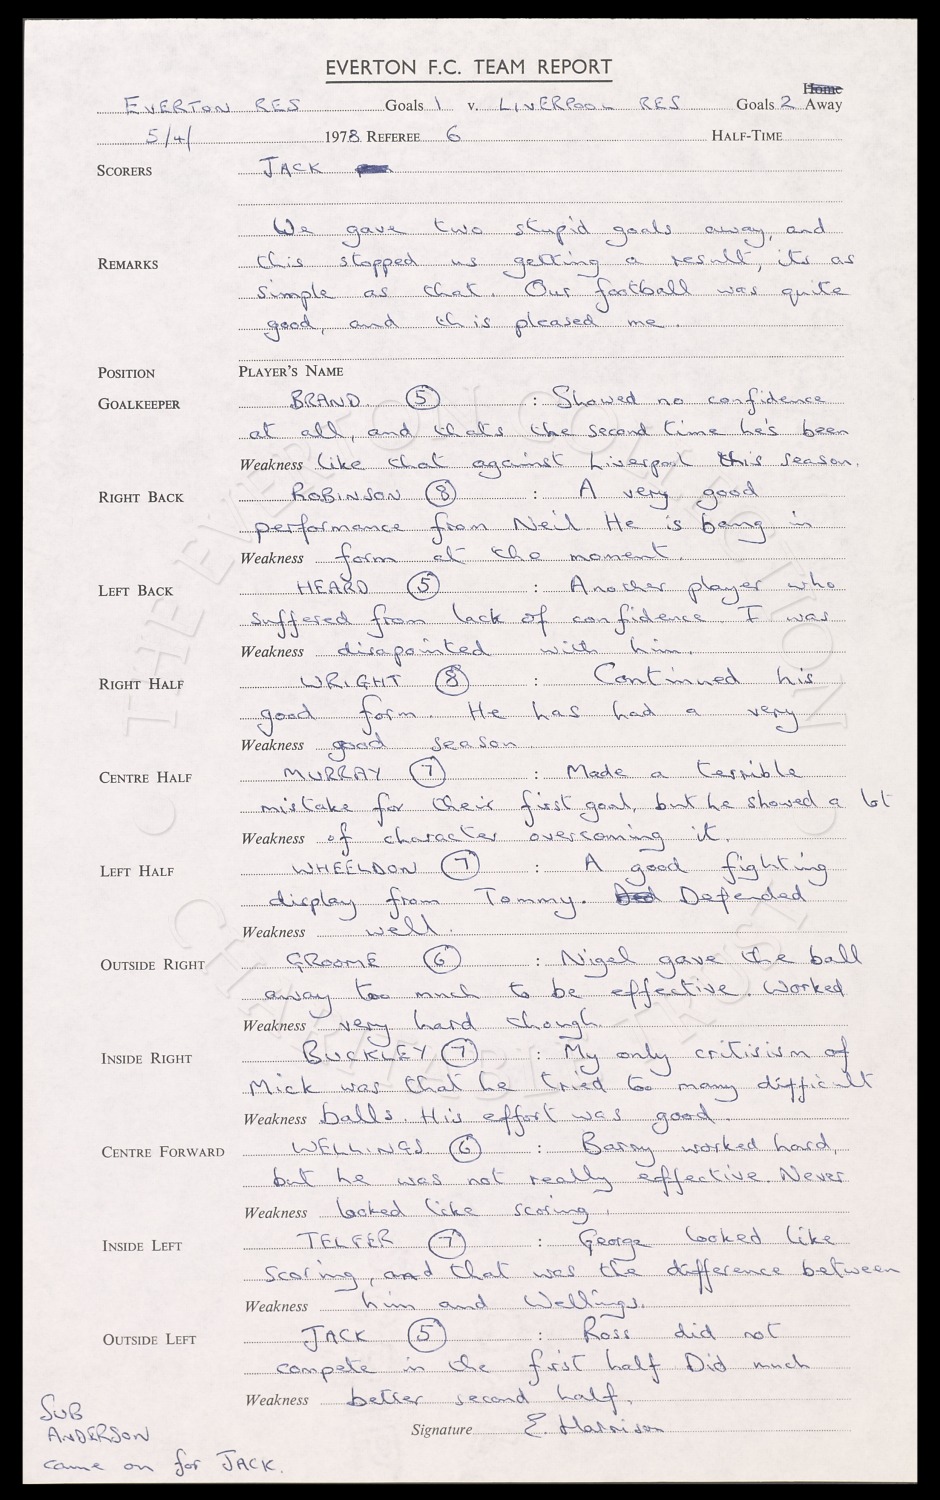 EVERTON F.C. TEAM REPORT
Home
EVERTON RES Goals 1 v. LIVERPOOL RES Goals 2 Away
5/4/ 1978 REFEREE 6 HALF-TIME
SCORERS JACK
We gave two stupid goals away, and
REMARKS this stopped us getting a result, its as
simple as that. Our football was quite
good, and this pleased me.
POSITION PLAYER'S NAME
GOALKEEPER BRAND 5 : Showed no confidence
at all, and thats the second time he's been
Weakness like that against Liverpool this season.
RIGHT BACK ROBINSON 8 : A very good
performance from Neil. He is bang in
Weakness form at the moment.
LEFT BACK HEARD 5 : Another player who
suffered from lack of confidence I was
Weakness disapointed with him.
RIGHT HALF WRIGHT 8 : Continued his
good form. He has had a very
Weakness good season.
CENTRE HALF MURRAY 7 : Made a terrible
mistake for their first goal, but he showed a lot
Weakness of character overcoming it.
LEFT HALF WHEELDON 7 : A good fighting
display from Tommy. Defended
Weakness well.
OUTSIDE RIGHT GROOME 6 : Nigel gave the ball
away too much to be effective. Worked
Weakness very hard though
INSIDE RIGHT BUCKLEY 7 : My only critisism of
Mick was that he tried to many difficult
Weakness balls. His effort was good
CENTRE FORWARD WELLINGS 6 : Barry worked hard,
but he was not really effective. Never
Weakness looked like scoring.
INSIDE LEFT TELFER 7 : George looked like
scoring, and that was the difference between
Weakness him and Wellings.
OUTSIDE LEFT JACK 5 : Ross did not
compete in the first half Did much
Weakness better second half.
Signature E. Harrison
SUB
ANDERSON
came on for JACK.
THE EVERTON COLLECTION
CHARITABLE TRUST